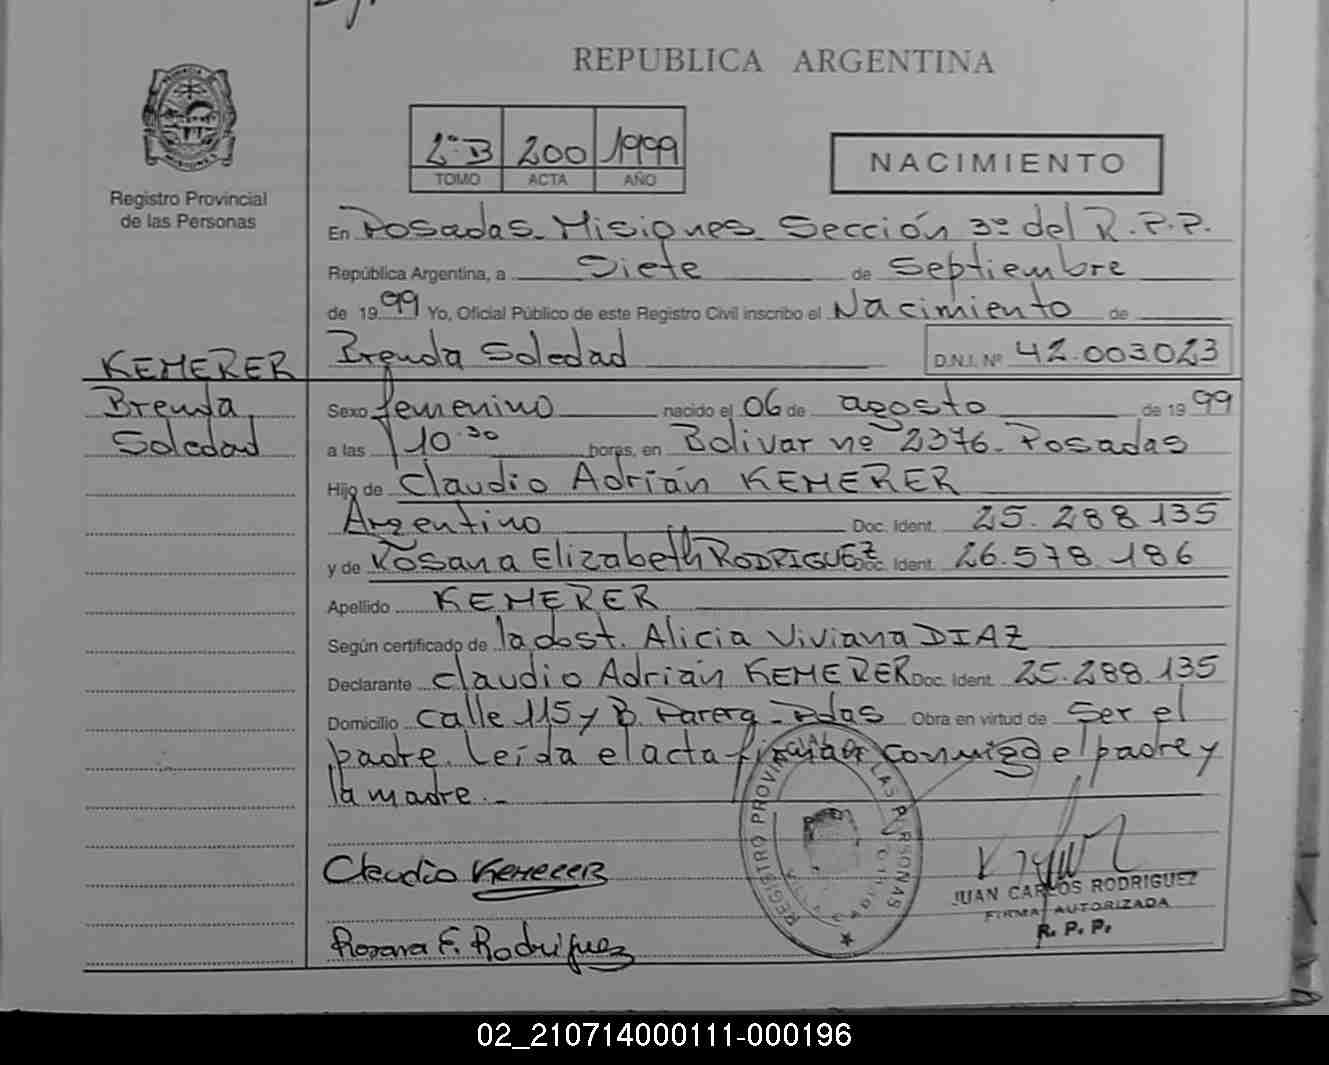 REPUBLICA ARGENTINA
2º B 200 1999
TOMO ACTA AÑO
NACIMIENTO
Registro Provincial
de las Personas
En Posadas Misiones Sección 3º del R.P.P.
República Argentina, a Siete de Septiembre
de 1999 Yo, Oficial Público de este Registro Civil inscribo el Nacimiento de
Brenda Soledad D.N.I. Nº 42.003023
KEMERER
Brenda
Soledad
Sexo femenino nacido el 06 de agosto de 1999
a las 10.30 horas, en Bolivar nº 2376. Posadas
Hijo de Claudio Adrián KEMERER
Argentino Doc. Ident. 25.288.135
y de Rosana Elizabeth RODRIGUEZ Doc. Ident. 26.578.186
Apellido KEMERER
Según certificado de la obst. Alicia Viviana DIAZ
Declarante Claudio Adrián KEMERER Doc. Ident. 25.288.135
Domicilio calle 115 y B. Parera - Pdas Obra en virtud de ser el
padre. Leída el acta firman conmigo el padre y
la madre.-
Claudio KEMERER
Rosana E. Rodriguez
REGISTRO PROVINCIAL DE LAS PERSONAS
JUAN CARLOS RODRIGUEZ
FIRMA AUTORIZADA
R. P. P.
02_210714000111-000196